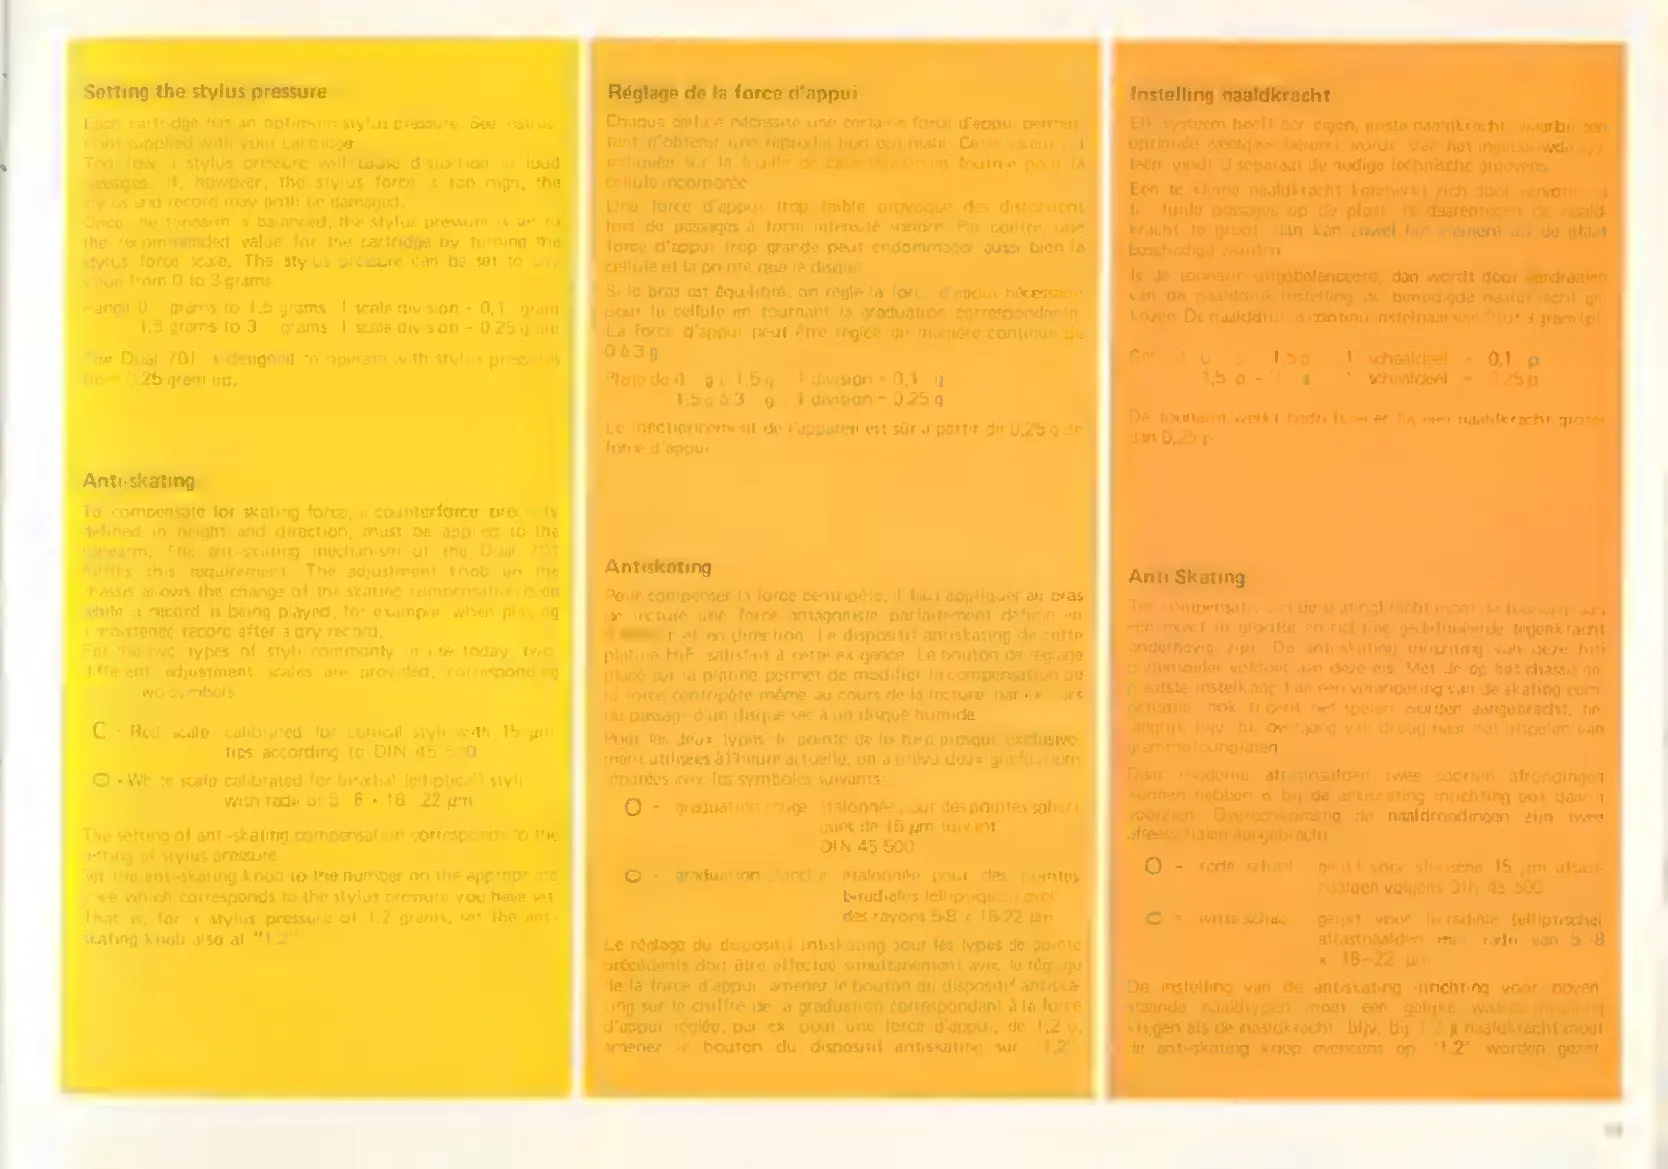 Setting the stylus pressure
Each cartridge has an optimum stylus pressure. See instruc-
tions supplied with your cartridge
Too low a stylus pressure will cause distortion in loud
passages. If, however, the stylus force is too high, the
stylus and record may both be damaged.
Once the tonearm is balanced, the stylus pressure is set to
the recommended value for the cartridge by turning the
stylus force scale. The stylus pressure can be set to any
value from 0 to 3 grams.
Range 0 grams to 1.5 grams 1 scale division - 0,1 gram
1,5 grams to 3 grams 1 scale division - 0.25 gram
The Dual 701 is designed to operate with stylus pressures
from 0.25 gram up.
Anti-skating
To compensate for skating force, a counterforce precisely
defined in height and direction, must be applied to the
tonearm. The anti-skating mechanism of the Dual 701
fulfills this requirement. The adjustment knob on the
chassis allows the change of the skating compensation even
while a record is being played, for example when playing
a moistened record after a dry record.
For the two types of styli commonly in use today, two
different adjustment scales are provided, corresponding
two symbols
- Red scale calibrated for conical styli with 15 µm
tips according to DIN 45 500
- White scale calibrated for biradial (elliptical) styli
with radii of 5 8 x 18 22 µm
The setting of anti-skating compensation corresponds to the
setting of stylus pressure
Set the anti-skating knob to the number on the appropriate
scale which corresponds to the stylus pressure you have set.
That is, for a stylus pressure of 1.2 grams, set the anti-
skating knob also at "1.2"
Réglage de la force d'appui
Chaque cellule nécessite une certaine force d'appui permet-
tant d'obtenir une reproduction optimale. Cette valeur est
indiquée sur la feuille de caractéristiques fournie pour la
cellule incorporée
Une force d'appui trop faible provoque des distorsions
lors de passages à forte intensité sonore. Par contre, une
force d'appui trop grande peut endommager aussi bien la
cellule et la pointe que le disque.
Si le bras est équilibré, on règle la force d'appui nécessaire
pour la cellule en tournant la graduation correspondante.
La force d'appui peut être réglée de manière continue de
0 à 3 g
Plage de 0 g à 1,5 g 1 division - 0,1 g
1,5 g à 3 g 1 division - 0.25 g
Le fonctionnement de l'appareil est sûr à partir de 0,25 g de
force d'appui
Antiskating
Pour compenser la force centripète, il faut appliquer au bras
de lecture une force antagoniste parfaitement définie en
et en direction. Le dispositif antiskating de cette
platine HiFi satisfait à cette exigence. Le bouton de réglage
placé sur la platine permet de modifier la compensation de
la force centripète même au cours de la lecture, par ex. lors
du passage d'un disque sec à un disque humide
Pour les deux types de pointe de lecture presque exclusive-
ment utilisées à l'heure actuelle, on a prévu deux graduations
repérées avec les symboles suivants:
- graduation rouge étalonnée pour des pointes sphéri-
ques de 15 µm suivant
DIN 45 500
- graduation blanche étalonnée pour des pointes
biradiales (elliptiques) avec
des rayons 5-8 x 18-22 µm
Le réglage du dispositif antiskating pour les types de pointe
précédents doit être effectué simultanément avec le réglage
de la force d'appui amenez le bouton du dispositif antiska-
ting sur le chiffre de la graduation correspondant à la force
d'appui réglée, par ex. pour une force d'appui, de 1,2 g,
amenez le bouton du dispositif antiskating sur "1,2".
Instelling naaldkracht
Elk systeem heeft een eigen, juiste naaldkracht, waarbij een
optimale weergave bereikt wordt. Van het ingebouwde sys-
teem vindt U separaat de nodige technische gegevens
Een te kleine naaldkracht kenmerkt zich door vervorming
bij luide passages op de plaat. Is daarentegen de naald-
kracht te groot, dan kan zowel het element als de plaat
beschadigd worden
Is de toonarm uitgebalanceerd, dan wordt door verdraaien
van de naalddruk-instelling de benodigde naaldkracht ge-
kozen. De naalddruk is continu instelbaar van 0 tot 3 gram (p).
1,5 p 1 schaaldeel - 0,1 p
1,5 p - 3 1 schaaldeel - 0,25 p
De toonarm werkt bedrijfszeker bij een naaldkracht groter
dan 0,25 p
Anti Skating
Ter compensatie van de skatingkracht moet de toonarm aan
een exact in grootte en richting gedefinieerde tegenkracht
onderhevig zijn. De anti-skating inrichting van deze hifi
platenspeler voldoet aan deze eis. Met de op het chassis ge-
plaatste instelknop kan een verandering van de skating com-
pensatie ook tijdens het spelen worden aangebracht, be-
langrijk bijv. bij overgang van droog naar nat afspelen van
grammofoonplaten
Daar moderne aftastnaalden twee soorten afrondingen
kunnen hebben is bij de antiskating inrichting ook daarin
voorzien. Overeenkomstig de naaldrondingen zijn twee
afleesschalen aangebracht
- rode schaal geijkt voor sferische 15 µm aftast-
naalden volgens DIN 45 500
- witte schaal geijkt voor bi-radiale (elliptische)
aftastnaalden met radii van 5-8
x 18-22 µm
De instelling van de antiskating inrichting voor boven-
staande naaldtypen moet een gelijke waarde-instelling
krijgen als de naaldkracht bijv. bij 1,2 p naaldkracht moet
de anti-skating knop eveneens op "1,2" worden gezet.